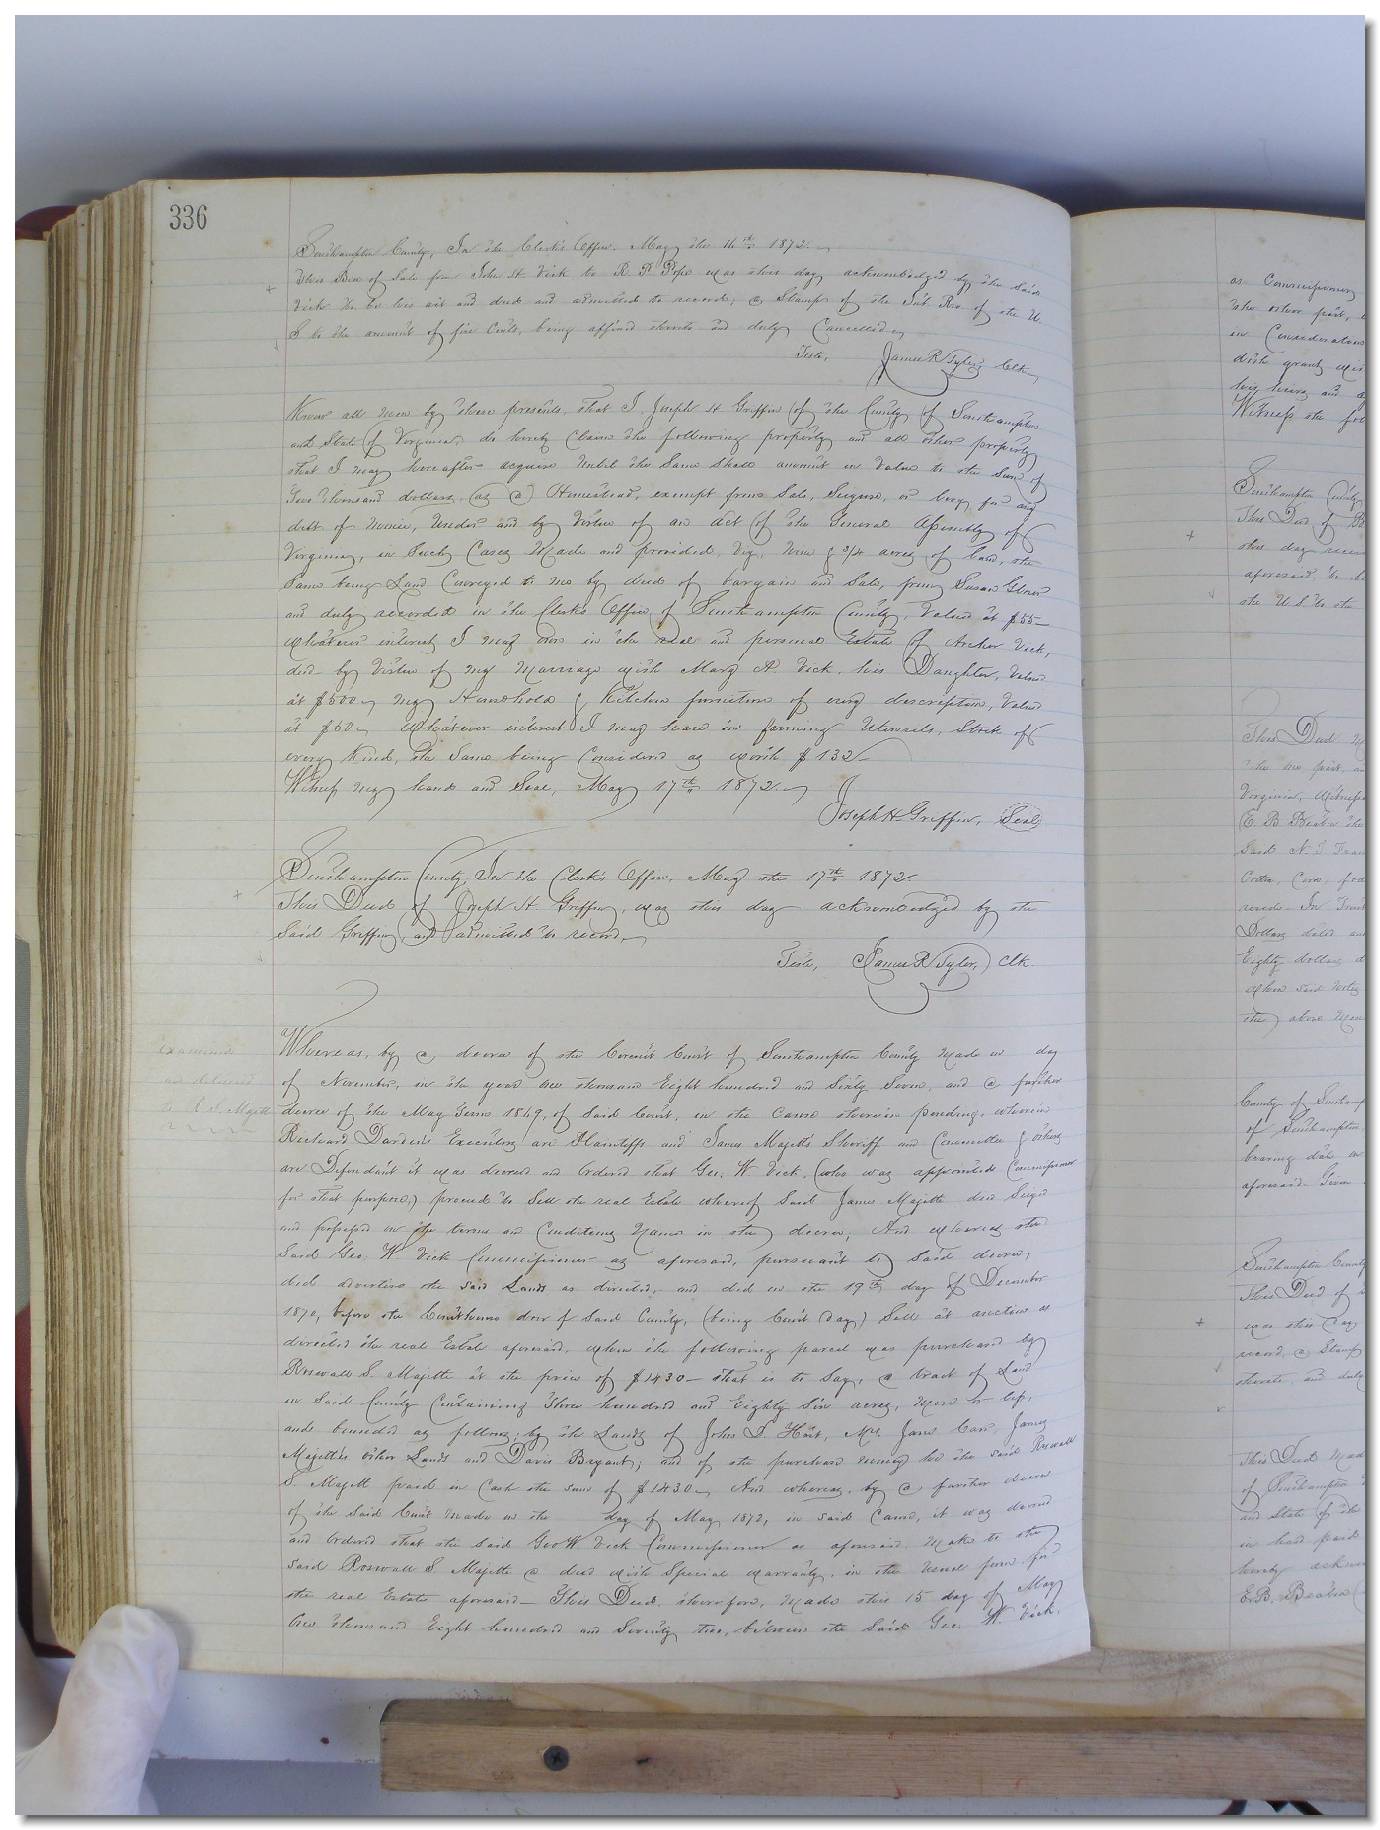 336
Southampton County, In the Clerk's Office, May the 16th 1872.
This Bill of Sale from John H Vick to R. P. Pope was this day acknowledged by the said
Vick to be his act and deed and admitted to record, a Stamp of the Int. Rev. of the U.
S to the amount of five Cents, being affixed thereto and duly Cancelled.
Teste, James R Tyler, Clk
Know all men by these presents, that I, Joseph H Griffin of the County of Southampton
and State of Virginia, do hereby Claim the following property and all other property
that I may hereafter acquire until the Same Shall amount in Value to the Sum of
Two thousand dollars, as a Homestead, exempt from Sale, Seizure, or levy for any
debt of mine, Under and by Virtue of an Act of the General Assembly of
Virginia, in Such Cases Made and provided, Viz: Nine & 3/4 acres of land, the
Same being Land Conveyed to me by deed of bargain and Sale, from Susan
and duly recorded in the Clerks Office of Southampton County, Valued at $55-
Whatever interest I may own in the real and personal Estate of Archer Vick,
decd by Virtue of my Marriage with Mary A. Vick, his Daughter, Valued
at $500- my Household & Kitchen furniture of every description, Valued
at $60- Whatever interest I may have in farming Utensils, Stock of
every Kind, the Same being Considered as worth $132-
Witness my hand and Seal, May 17th 1872
Joseph H Griffin, Seal
Southampton County, In the Clerk's Office, May the 17th 1872-
This Deed of Joseph H. Griffin, was this day acknowledged by the
Said Griffin, and admitted to record,
Teste, James R Tyler, Clk.
Examined
and delivered
to R S. Majett
Whereas, by a decree of the Circuit Court of Southampton County Made on day
of November, in the year One thousand Eight hundred and Sixty Seven, and a further
decree of the May Term 1869, of Said Court, in the Cause therein pending, wherein
Richard Darden's Executors are Plaintiffs and James Majett's Sheriff and Committee & others
are Defendants it was decreed and Ordered that Geo. W Vick, (who was appointed Commissioner
for that purpose,) proceed to Sell the real Estate whereof Said James Majette died Seized
and possessed on the terms and Conditions Named in the decree; And whereas the
Said Geo. W. Vick Commissioner as aforesaid, pursuant to Said decree;
did advertise the Said Lands as directed, and did on the 19th day of December
1870, before the Courthouse door of Said County, (being Court day) Sell at auction as
directed the real Estate aforesaid, when the following parcel was purchased by
Roswall S. Majette at the price of $1430- that is to Say, a tract of Land
in Said County Containing Three hundred and Eighty Six acres, More or less,
and bounded as follows; by the Lands of John D. Hart, Mrs. Jane Carr, James
Majette's other Lands and Davis Bryant; and of the purchase money hath the said Roswall
S. Majett paid in Cash the sum of $1430- And whereas, by a further decree
of the Said Court Made on the day of May 1872, in said Cause, it was decreed
and Ordered that the Said Geo W Vick Commissioner as aforesaid, Make to the
said Roswall S. Majette a deed with Special warranty, in the Usual form for
the real Estate aforesaid- This Deed, therefore, Made this 15 day of May
One thousand Eight hundred and Seventy two, between the Said Geo. W. Vick,
as Commissioner
the other part,
in Consideration
doth grant
his heirs and
Witness the fol
Southampton County
This Deed of
this day
aforesaid to
the U.S. to the
This Deed
the one part,
Virginia, Witness
E. B. Beale the
Said N. J.
Cotton, Corn,
In Trust
Dollars dated
Eighty dollars
When said Notes
the above
County of Southamp
of Southampton
bearing date
aforesaid. Given
Southampton County
This Deed of
was this day
record, a Stamp
thereto, and duly
This Deed Mad
of Southampton
and State of the
in hand paid
hereby ackn
E.B.